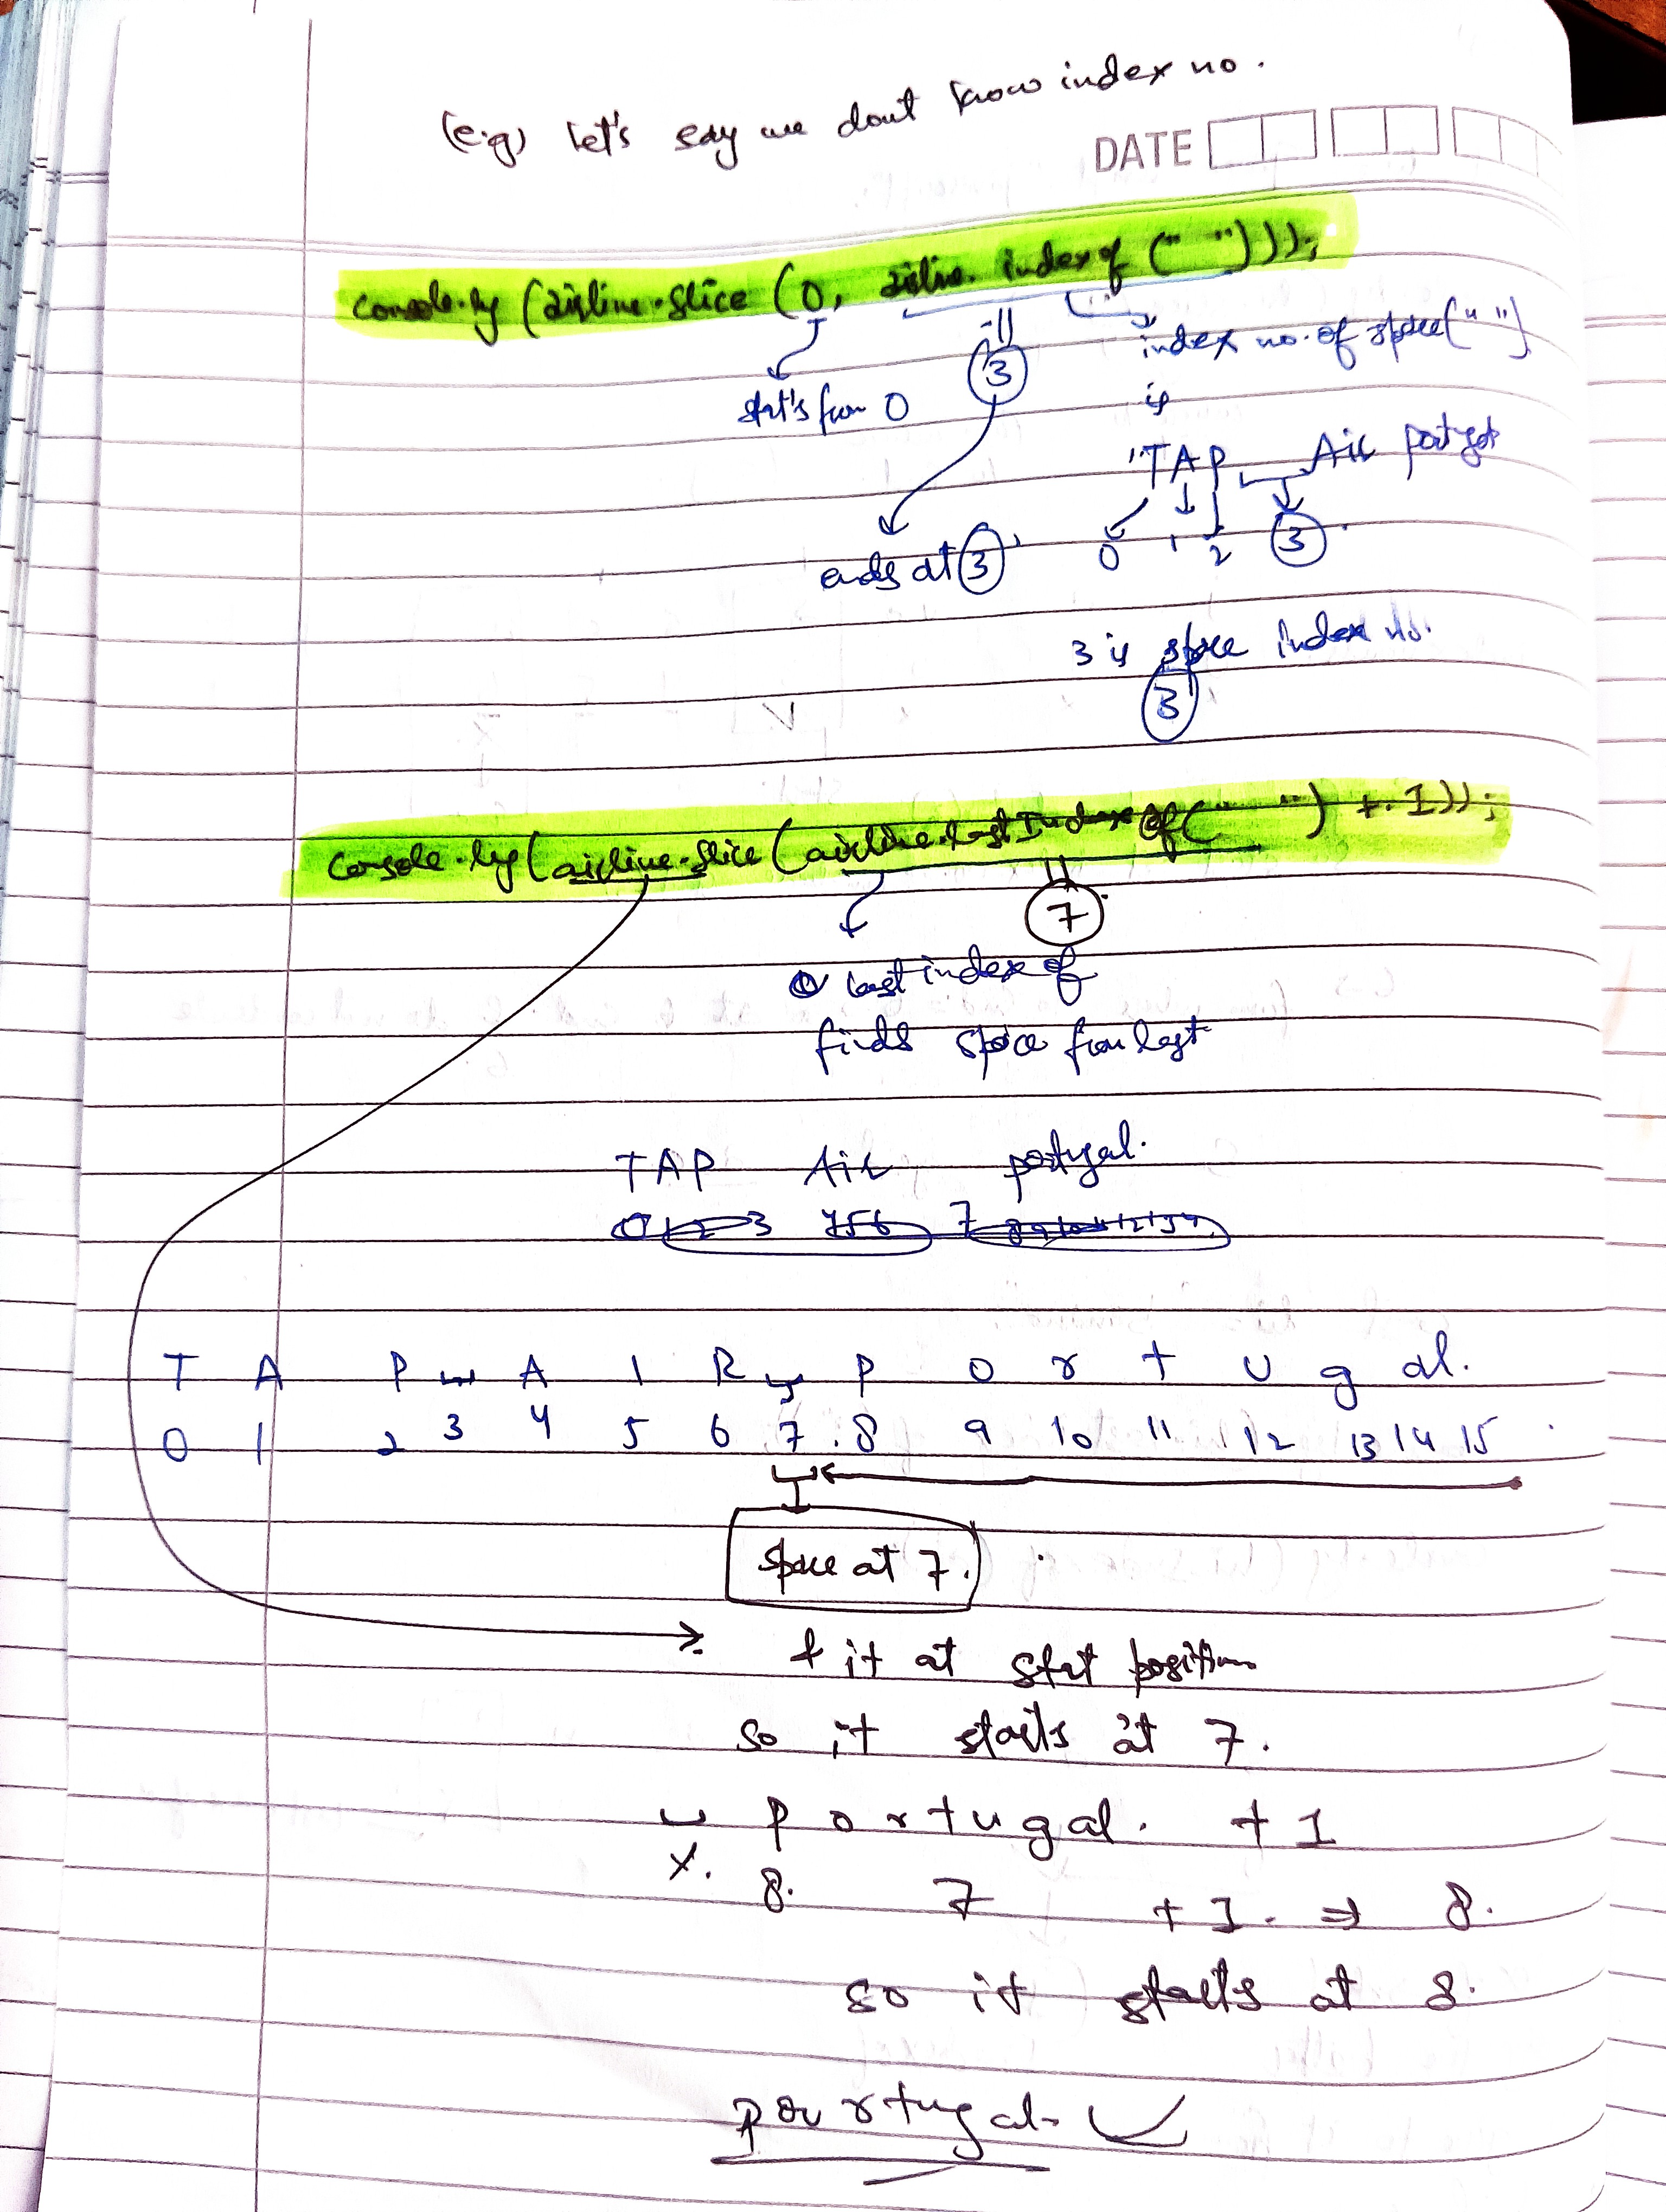 (e.g) let's say we dont know index no.
DATE
console.log (airline.slice (0, airline.indexof (" ")));
3
index no. of space (" ")
is
start's from 0
"TAP Air portgal
0 1 2 3
ends at 3
3 is space index no.
3
console.log (airline.slice (airline.lastIndex of (" ") + 1));
7
last index of
finds space from last
TAP Air portugal.
0 1 2 3 4 5 6 7 8 9 10 11 12 13 14
T A P A I R P o r t u g al.
0 1 2 3 4 5 6 7 8 9 10 11 12 13 14 15
space at 7.
& it at start position
so it starts at 7.
P o r t u g al. + 1
x. 8. 7 + 1. ⇒ 8.
so it starts at 8.
pourtugal